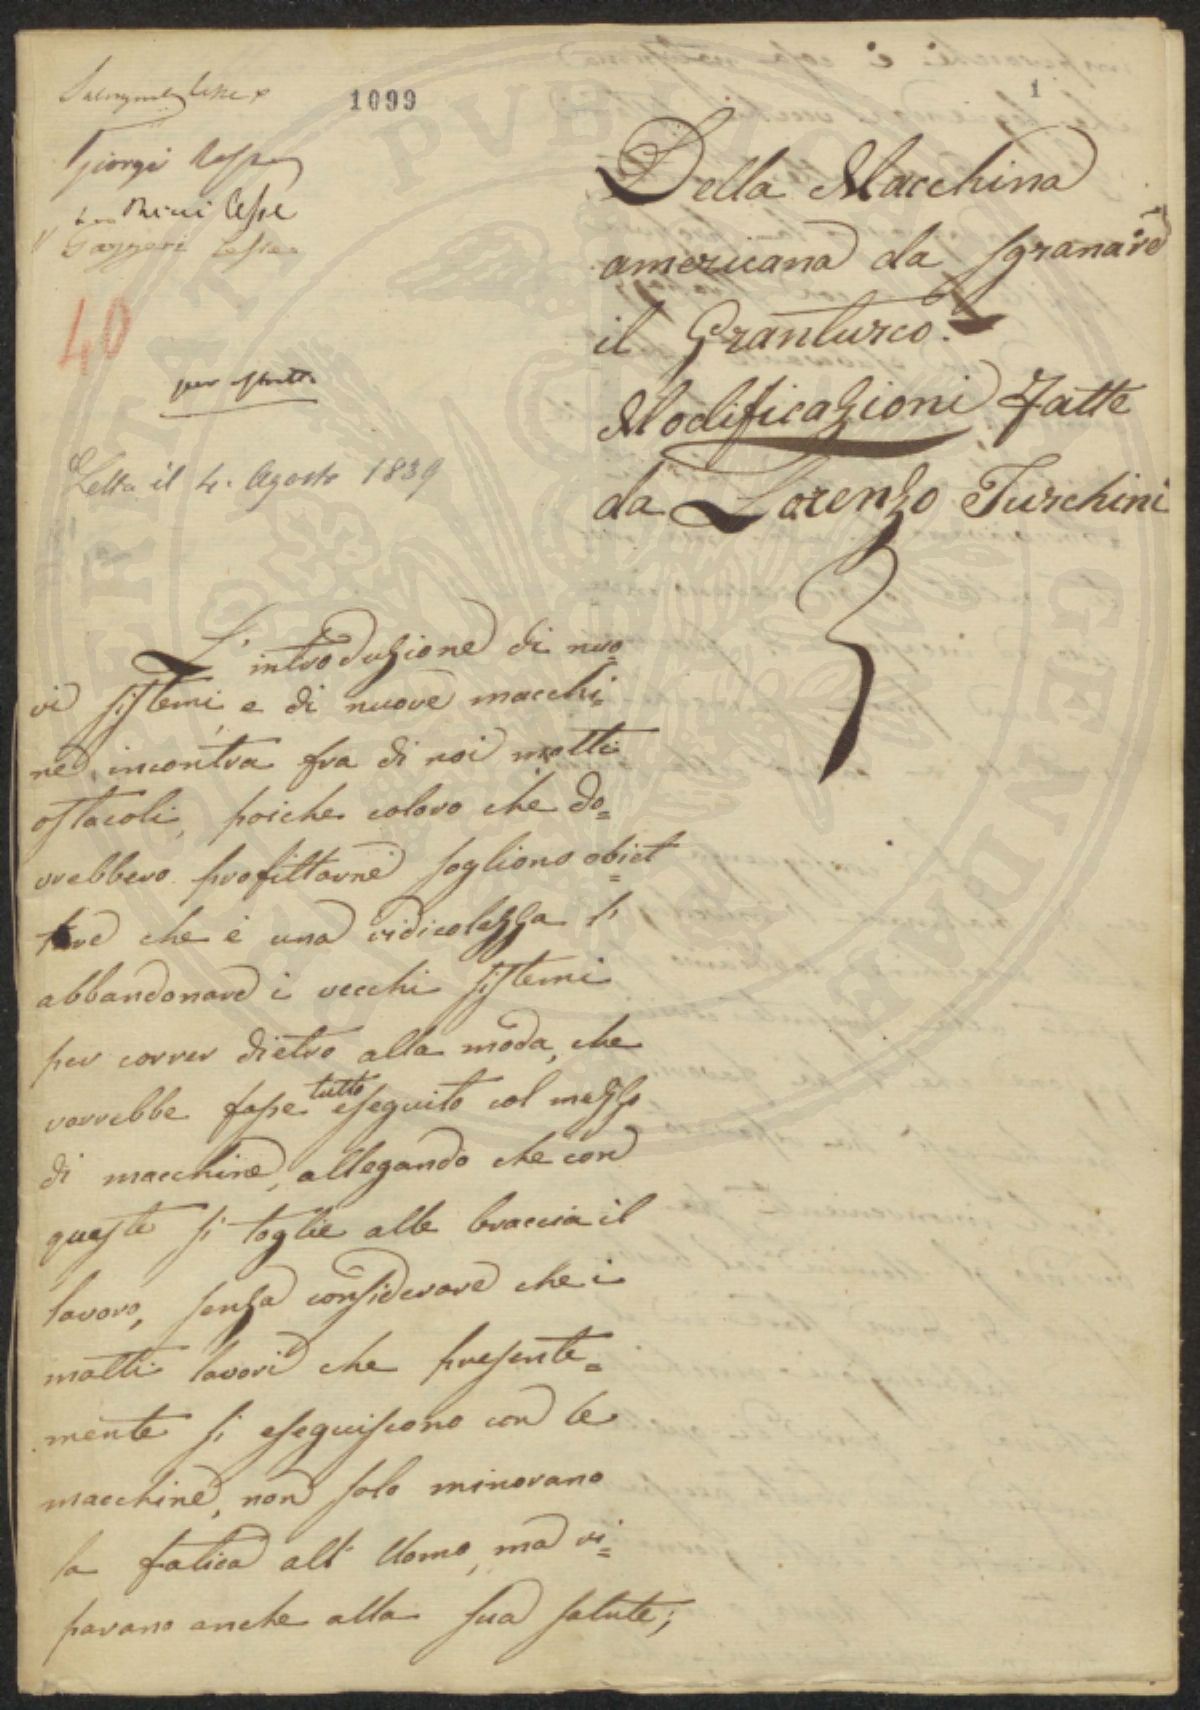 1099
1
Giorgi Lesse
Thini Lesse
Gazzeri Lesse
40
per estratto
Letta il 4. Agosto 1839
Della Macchina
americana da sgranare
il Granturco.
Modificazioni Fatte
da Lorenzo Turchini
L' introduzione di nuo=
vi sistemi, e di nuove macchi=
ne, incontra fra di noi molti
ostacoli, poiche coloro che do=
vrebbero profittarne sogliono obiet=
tare che è una ridicolezza l'
abbandonare i vecchi sistemi
per correr dietro alla moda, che
vorrebbe fosse tutto eseguito col mezzo
di macchine, allegando che con
queste si toglie alle braccia il
lavoro, senza considerare che i
molti lavori che presente=
mente si eseguiscono con le
macchine, non solo minorano
la fatica all' Uomo, ma ri=
parano anche alla sua salute;
PVBLICAE